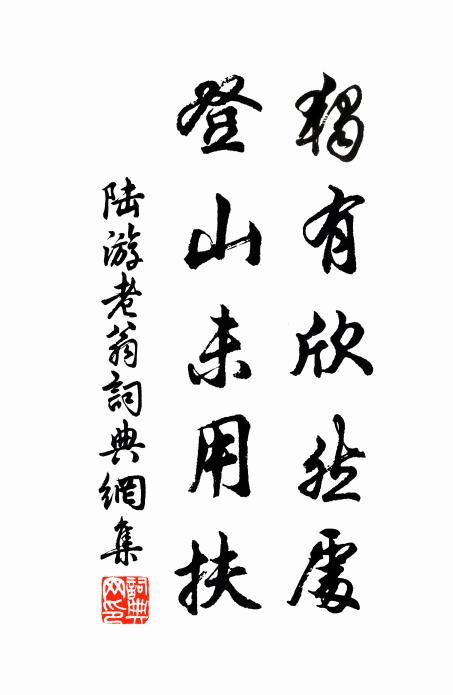 獨有欣然處
登山未用扶
陆游老翁詞典網集
詞典網印